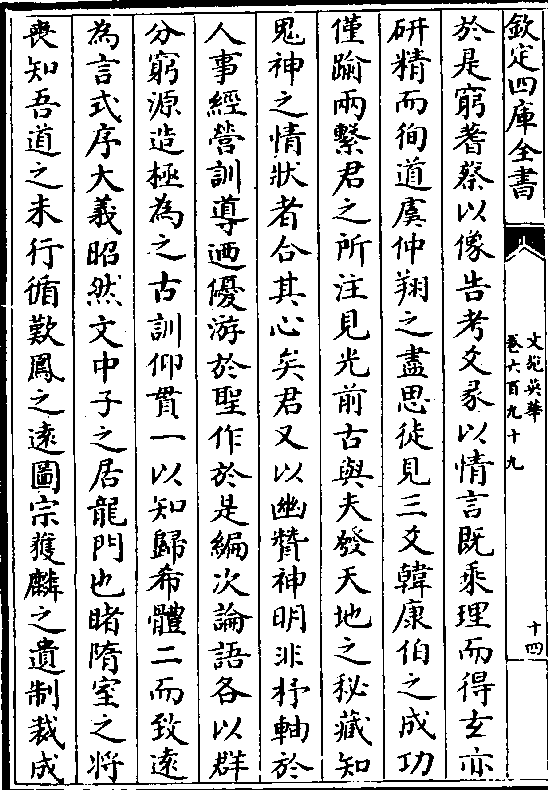 欽定四庫全書
文苑英華
卷六百九十九
十四
於是窮蓍蔡以像告考爻彖以情言既乘理而得玄亦
研精而徇道虞仲翔之盡思徒見三爻韓康伯之成功
僅踰兩繫君之所注見光前古與夫發天地之秘藏知
鬼神之情狀者合其心矣君又以幽贊神明非杼軸於
人事經營訓導廼優游於聖作於是編次論語各以群
分窮源造極為之古訓仰貫一以知歸希體二而致遠
為言式序大義昭然文中子之居龍門也睹隋室之將
喪知吾道之未行循歎鳳之遠圖宗獲麟之遺制裁成